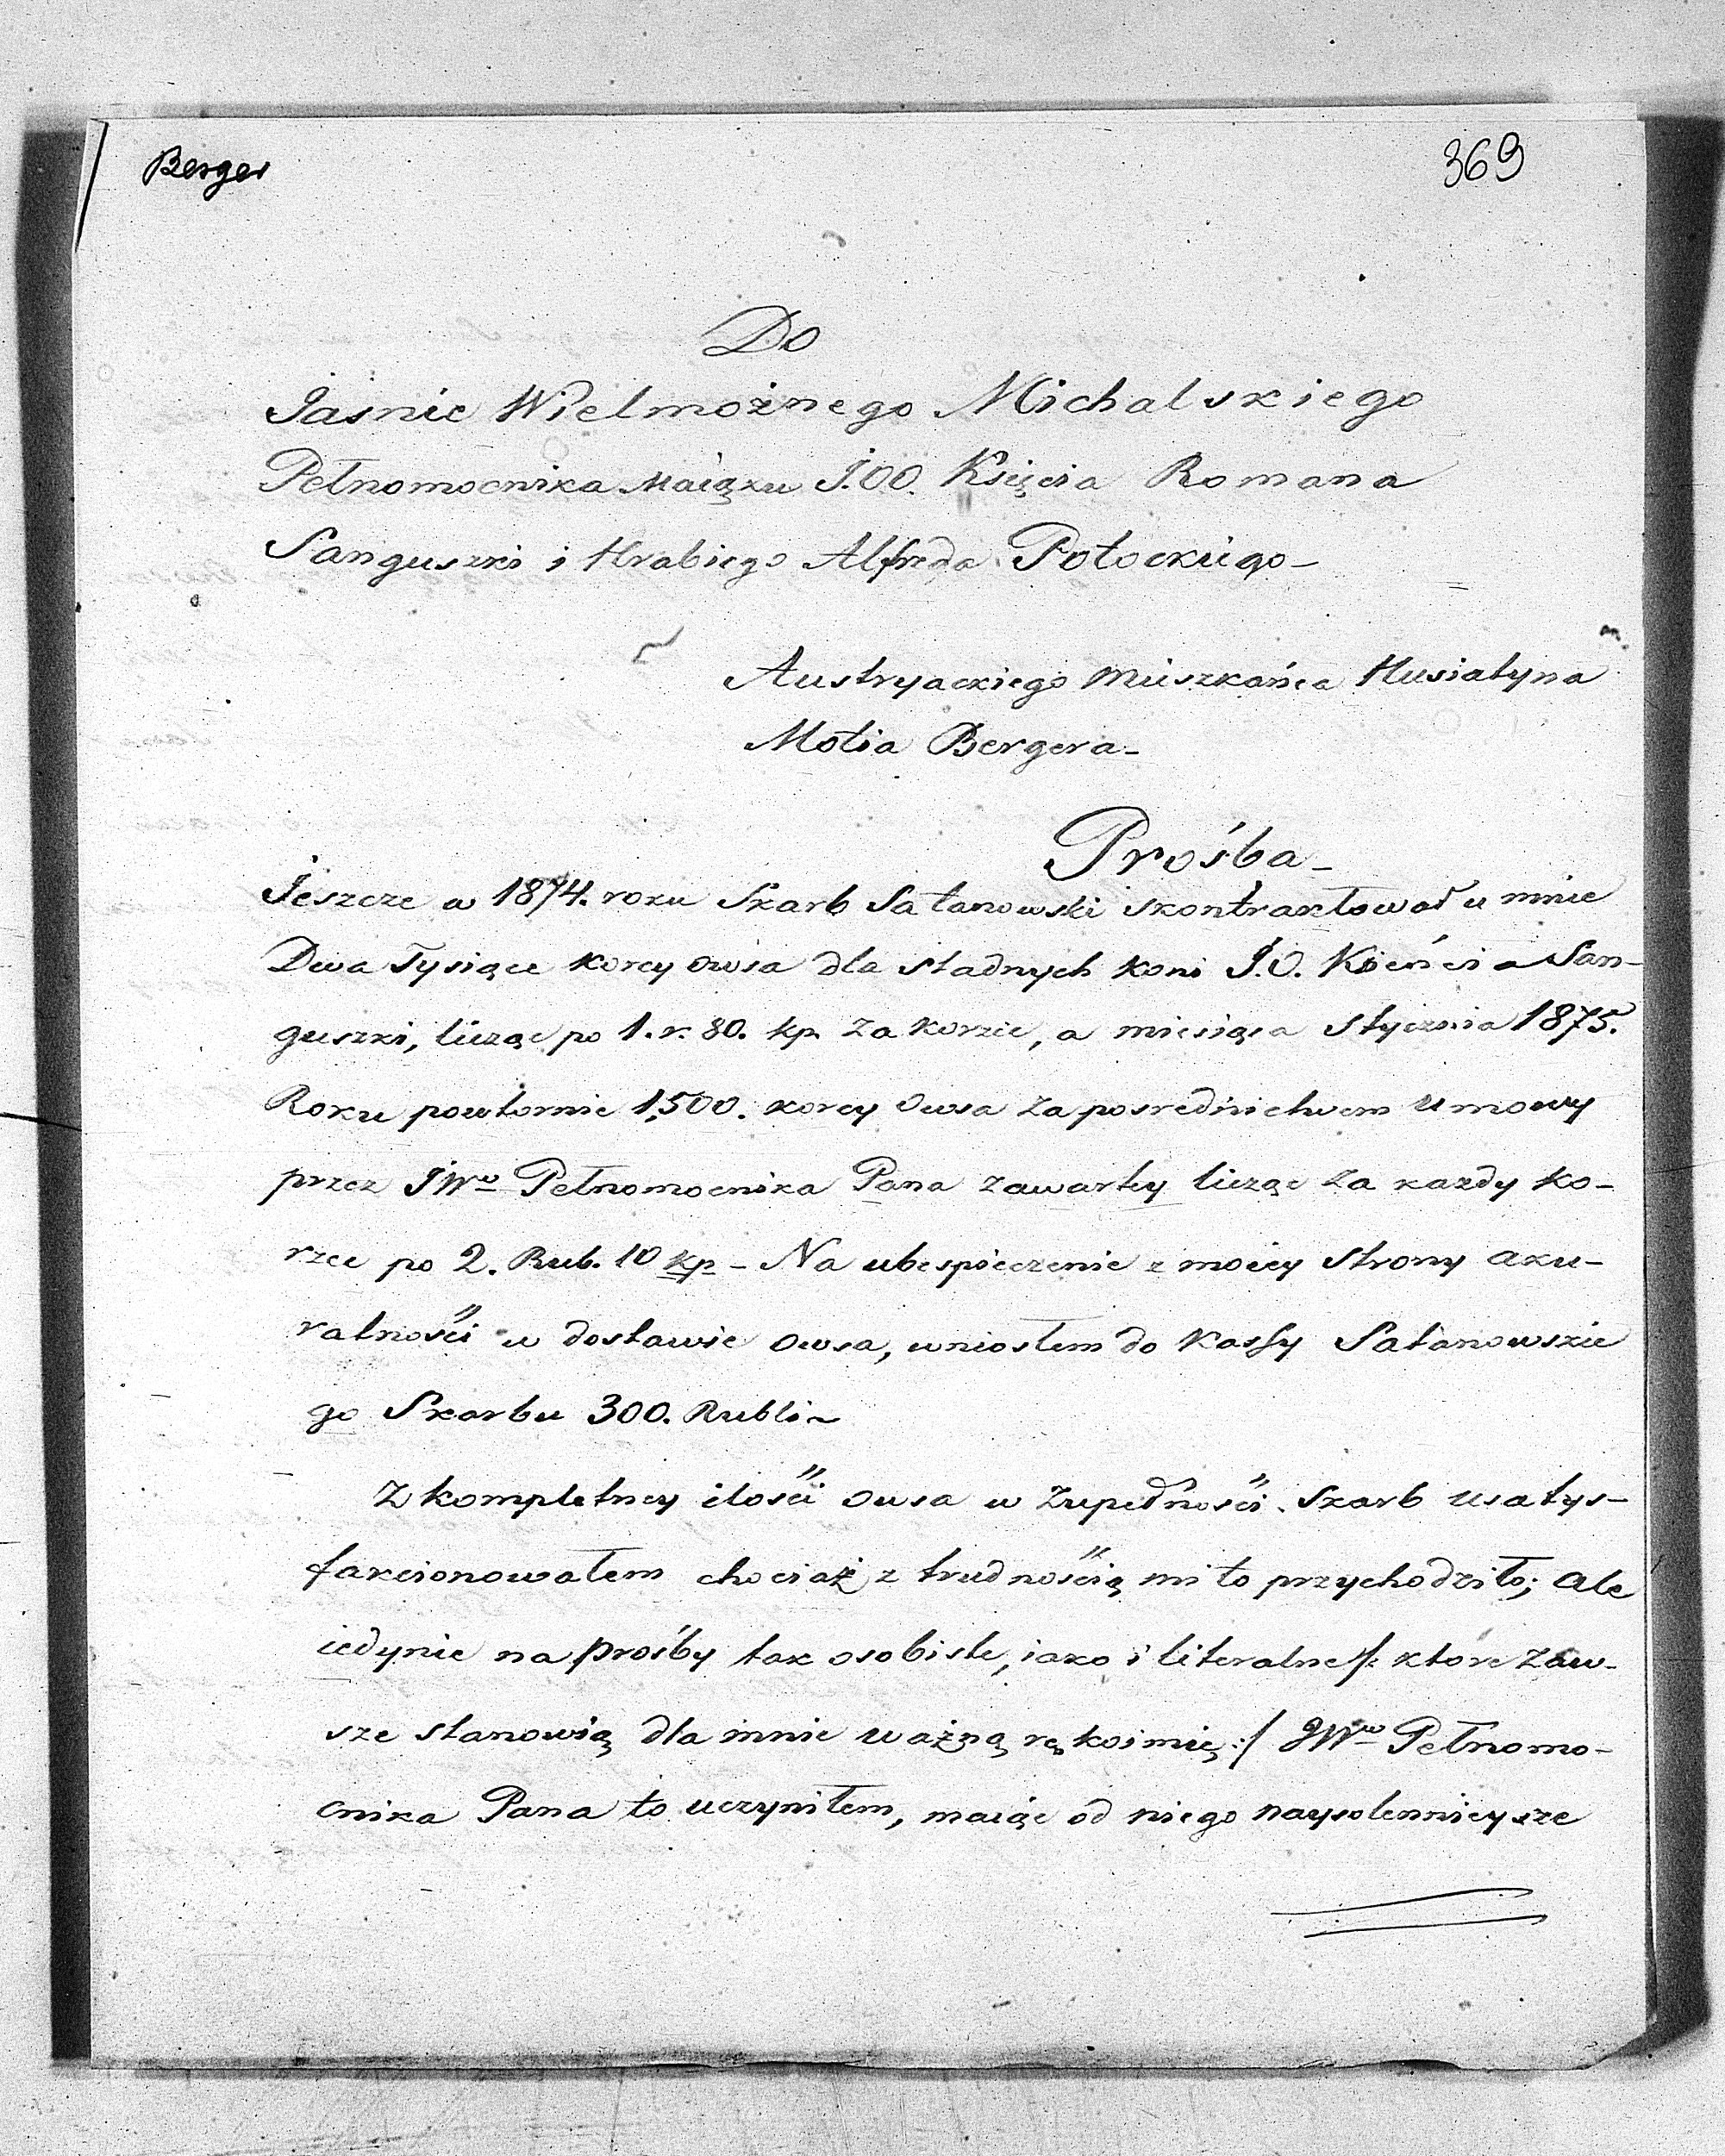 Berger
369
Do
Jasnie Wielmożnego Michalskiego
Pełnomocnika Maiąxu J.OO. Księcia Romana
Sanguszki i Hrabiego Alfreda Potockiego
Austryackiego Mieszkańca Husiatyna
Motia Bergera
Prośba
Jeszcze w 1874. roku Skarb Satanowski skontraktował u mnie
Dwa Tysiące korcy owsa dla stadnych koni J.O. Xsięńcia San-
guszki, licząc po 1. r. 80. kp. za korzec, a miesiąca Stycznia 1875.
Roku powtornie 1,500. korcy Owsa za posrednictwem Umowy
przez JWo Pełnomocnika Pana zawartey licząc za kazdy ko-
rzec po 2. Rub. 10 kp - Na ubespieczenie z moiey Strony aku-
ratności w dostawie owsa, wniosłem do Kassy Satanowskie
go Skarbu 300. Rubli
Z kompletney ilości owsa w zupełności Skarb usatys-
fakcionowałem chociaż z trudnością mi to przychodziło; ale
iedynie na prośby tak osobiste, iako i literalne /: ktore zaw-
sze stanowią dla mnie ważną rękoimię :/ JWo Pełnomo-
cnika Pana to uczyniłem, maiąc od niego naysolennieysze